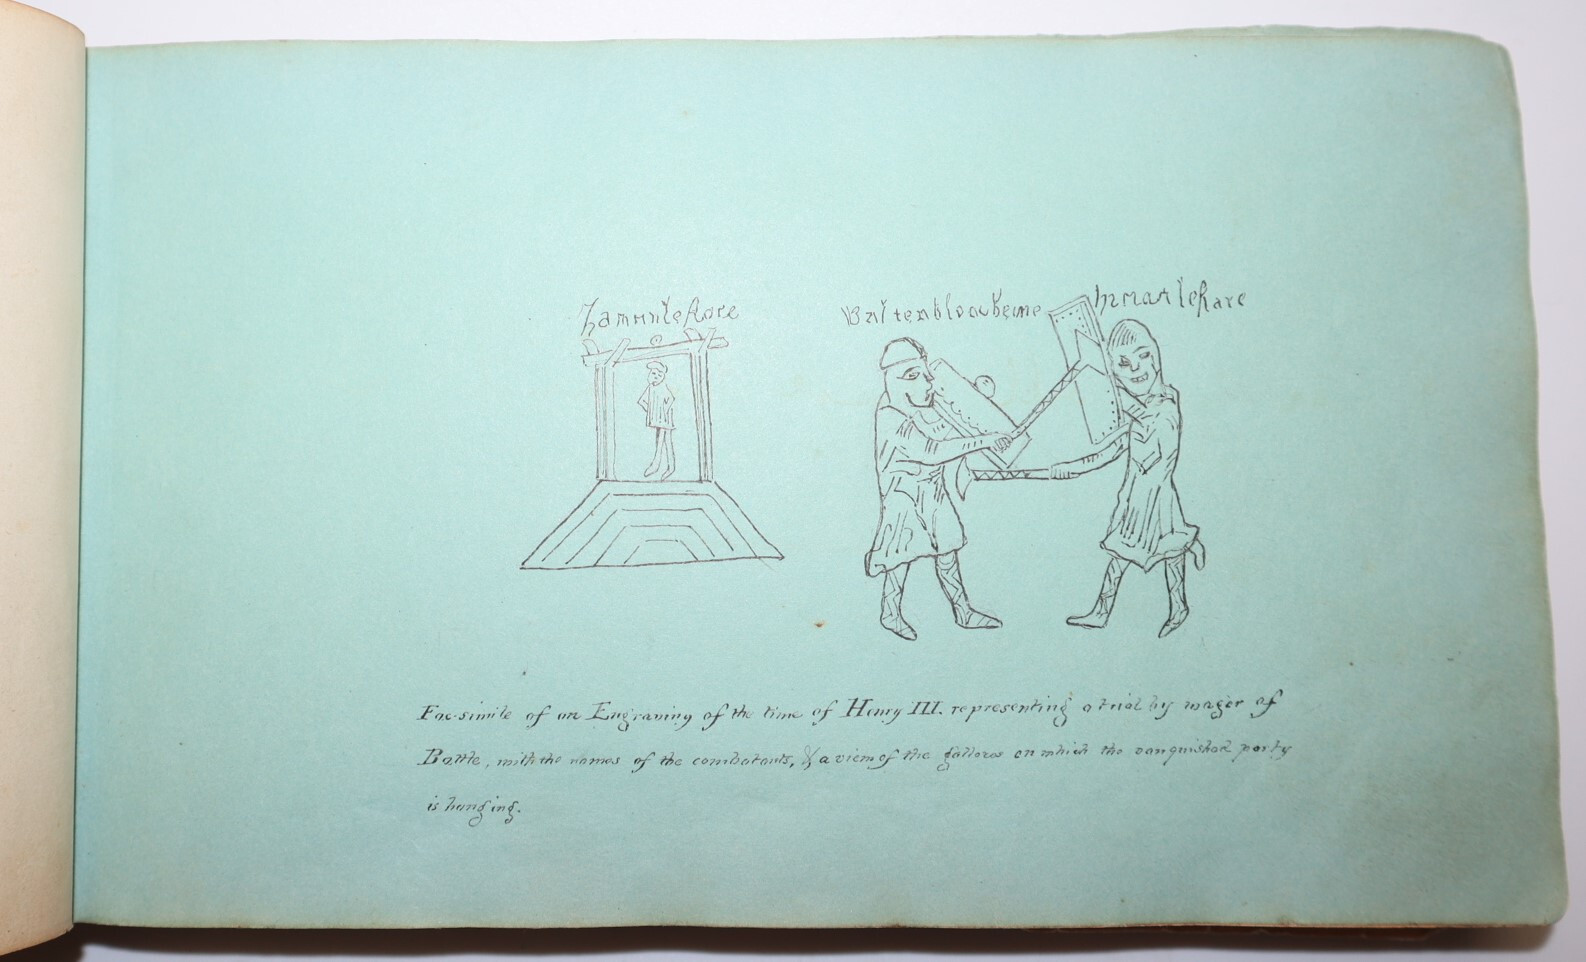 Hamunlestare
Walterblowberme
Hamunlestare
Fac-simile of an Engraving of the time of Henry III. representing a trial by wager of
Battle, with the names of the combatants, & a view of the gallows on which the vanquished party
is hanging.